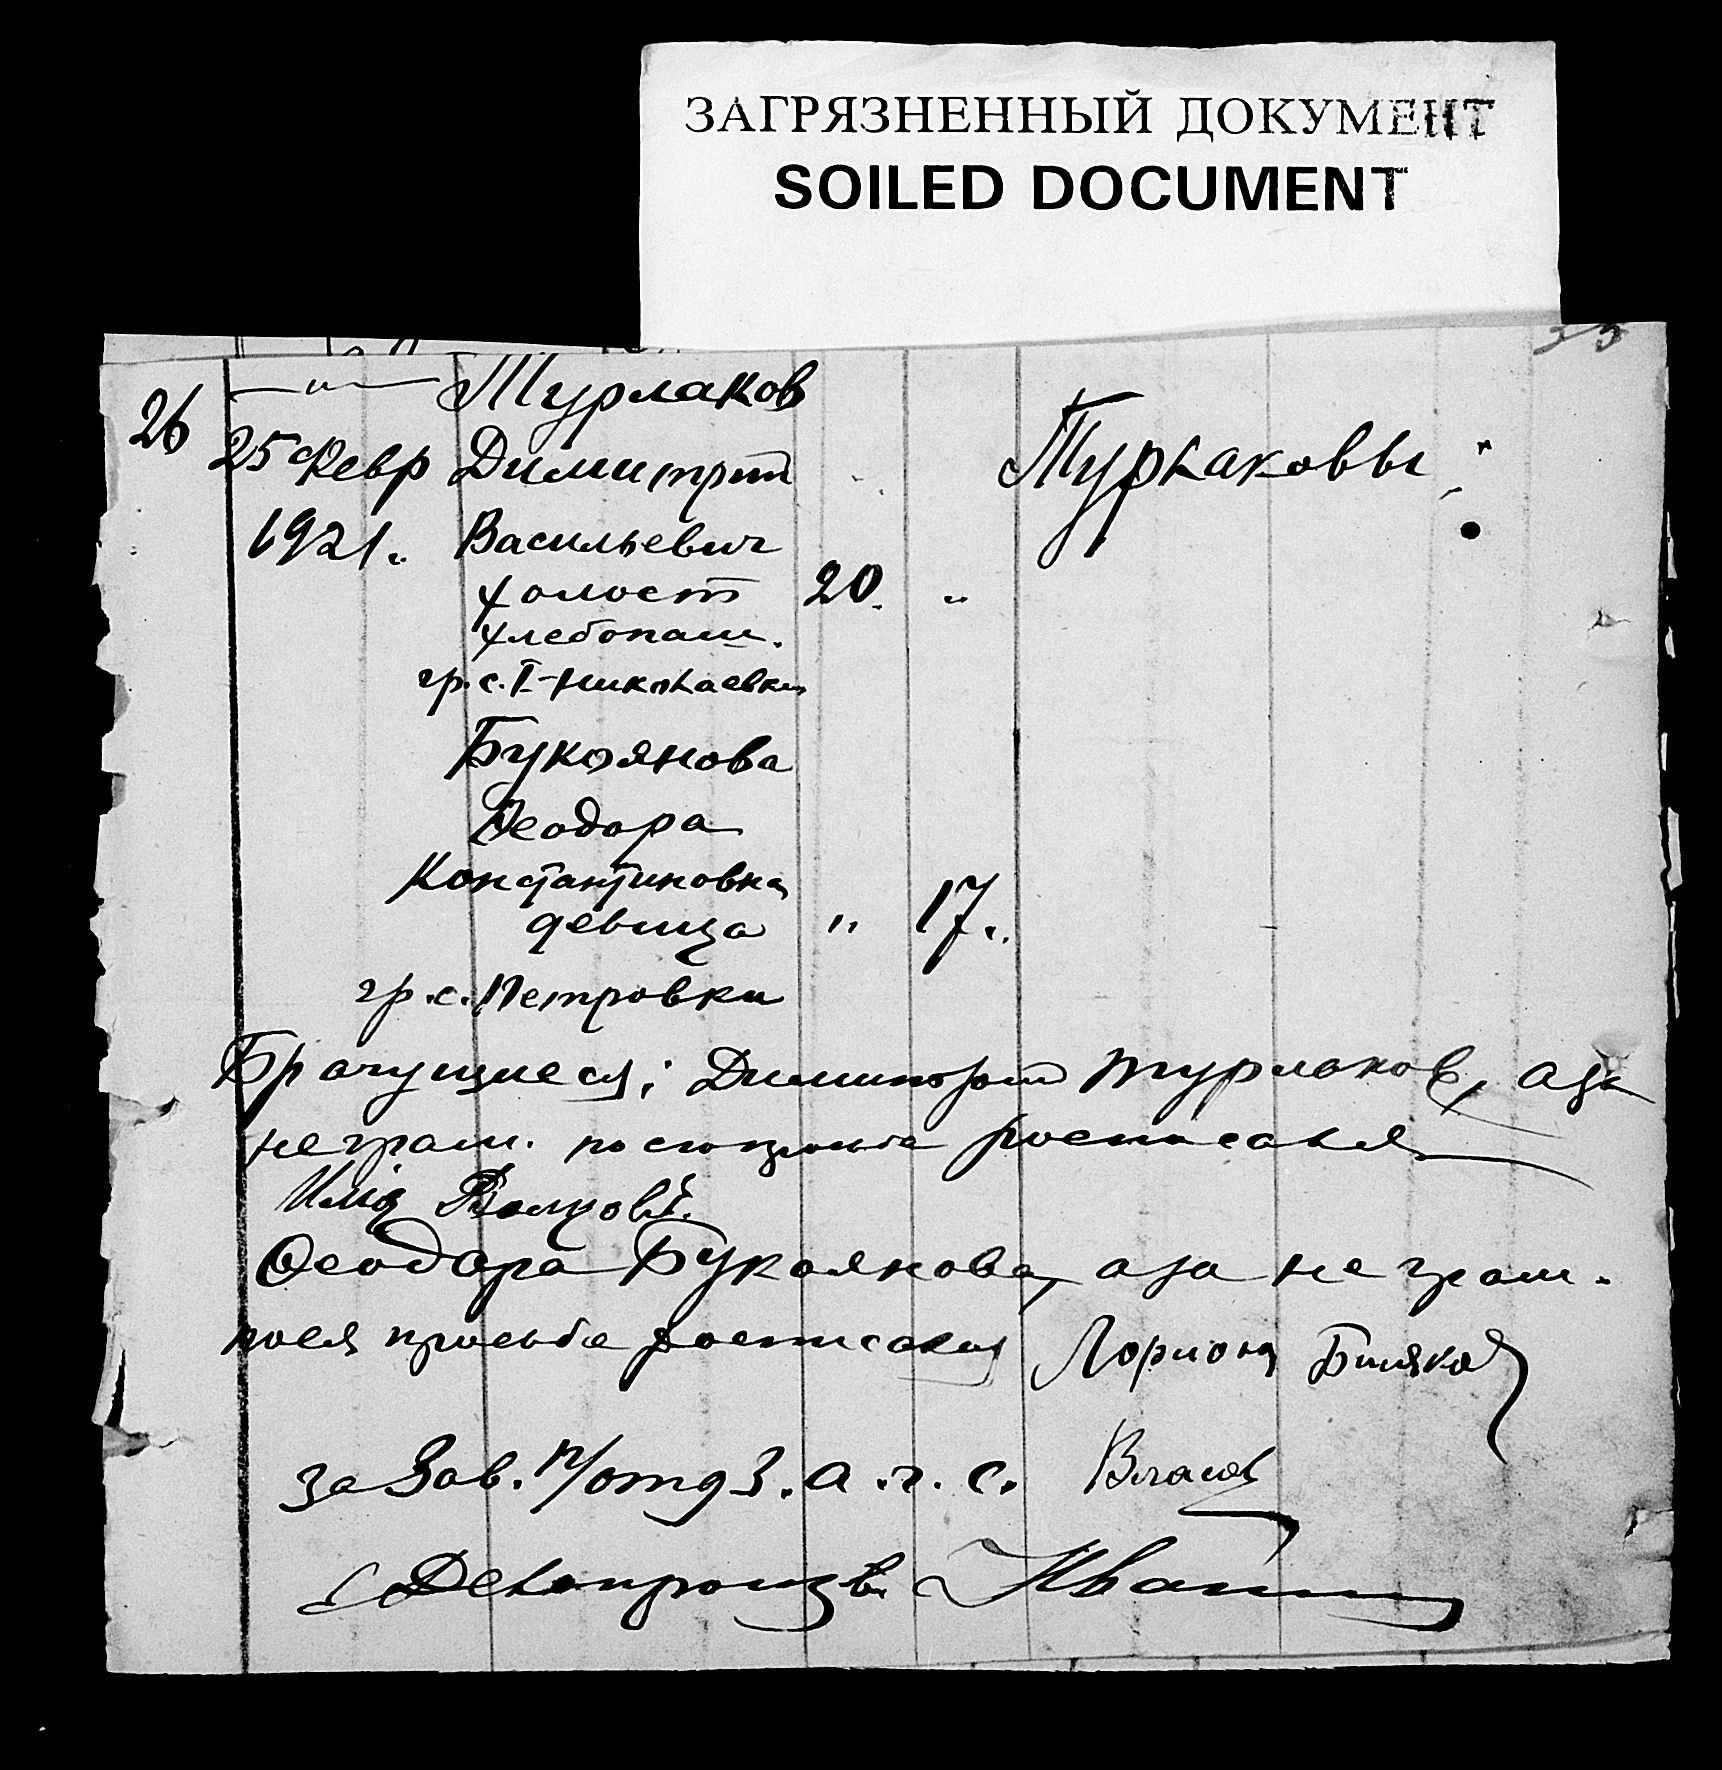 ЗАГРЯЗНЕННЫЙ ДОКУМЕНТ
SOILED DOCUMENT
33
26 —"— Турлаков
25 Февр Димитрий Турлаковы
1921. Васильевич
холост 20. "
хлебопаш.
гр. с. I-Николаевки
Букоянова
Феодора
Константиновна
девица " 17.
гр. с. Петровки
Брачущиеся: Димитрий Турлаков, а за
неграм. по его просьбе росписался
Илія
Феодора Букоянова, а за неграм.
по ея просьбе росписался
за Зав. п/отд З. а. г. с.
Делопроизв